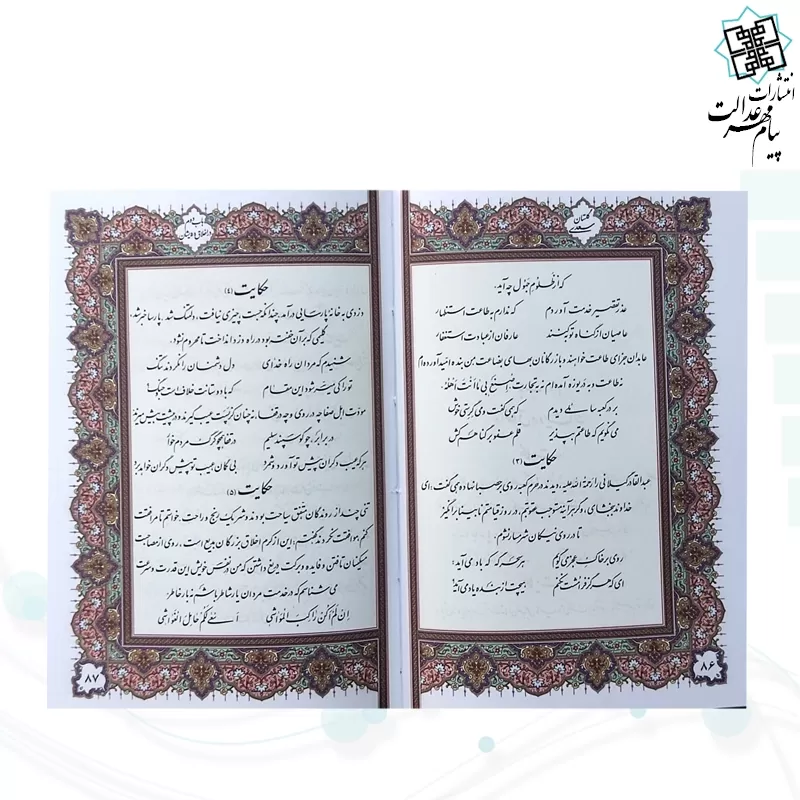 انتشارات
پیام مهر عدالت
گلستان
سعدی
که از ظلوم جهول چه آید:
عذر تقصیر خدمت آوردم که ندارم به طاعت استظهار
عاصیان از گناه توبه کنند عارفان از عبادت استغفار
عابدان جزای طاعت خواهند و بازرگانان بهای بضاعت من بنده امید آورده‌ام
نه طاعت و به دریوزه آمده‌ام نه به تجارت اِصْنَعْ بی ما اَنْتَ اَهْلُهُ:
بر در کعبه سائلی دیدم که همی گفت و می گرستی خوش
می نگویم که طاعتم بپذیر قلم عفو بر گناهم کش
حکایت (۳)
عبدالقادر گیلانی را رحمة الله علیه، دیدند در حرم کعبه، روی بر حصبا نهاده همی گفت: ای
خداوند ببخشای، وگر هر آینه مستوجب عقوبتم، در روز قیامتم نابینا برانگیز
تا در روی نیکان شرمسار نشوم.
روی بر خاک عجز می گویم هر سحرگه که باد می آید:
ای که هرگز فرامشت نکنم هیچت از بنده یاد می آید؟
۸۶
باب دوم
در اخلاق درویشان
حکایت (۴)
دزدی به خانه پارسایی در آمد چندانکه جست چیزی نیافت، دلتنگ شد. پارسا خبر شد،
گلیمی که بر آن خفته بود در راه دزد انداخت تا محروم نشود.
شنیدم که مردان راه خدای دل دشمنان را نکردند تنگ
تو را کی میسر شود این مقام که با دوستانت خلافست و جنگ
مودت اهل صفا چه در روی و چه در قفا، نه چنان کز پست عیب گیرند و در پیشت بیش میرند
در برابر چو گوسپند سلیم در قفا همچو گرگ مردم خوار
هر که عیب دگران پیش تو آورد و شمرد بی گمان عیب تو پیش دگران خواهد برد
حکایت (۵)
تنی چند از روندگان متفق سیاحت بودند و شریک رنج و راحت، خواستم تا مرافقت
کنم موافقت نکردند. گفتم: این از کرم اخلاق بزرگان بدیع است، روی از مصاحبت
مسکینان تافتن و فایده و برکت دریغ داشتن که من در نفس خویش این قدرت و سرعت
می شناسم که در خدمت مردان یار شاطر باشم نه بار خاطر:
اِنْ لَمْ اَکُنْ راکِبَ الْمَواشی اَسْعی لَکُمْ حامِلَ الْغَواشی
۸۷